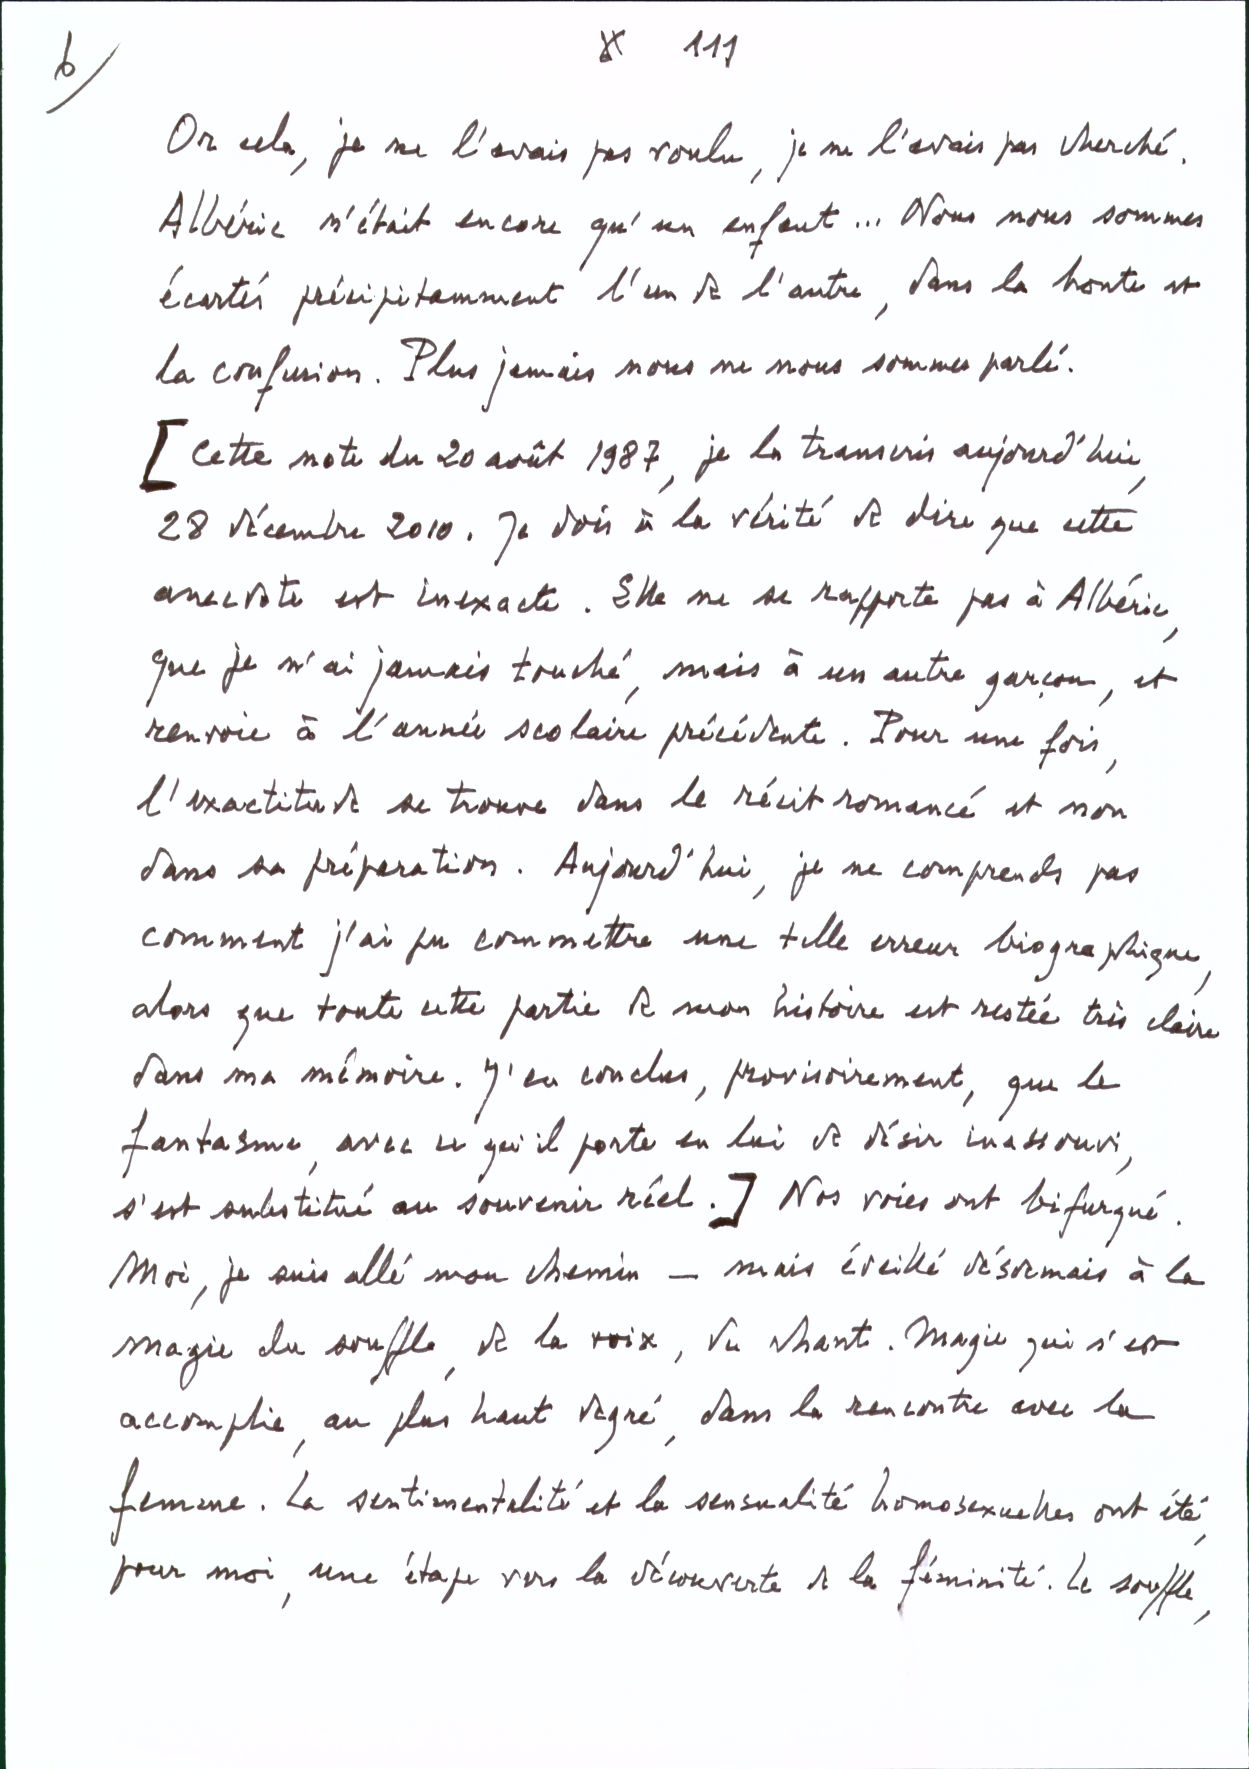 6/ 111
Or cela, je ne l'avais pas voulu, je ne l'avais pas cherché.
Albéric n'était encore qu'un enfant... Nous nous sommes
écartés précipitamment l'un de l'autre, dans la honte et
la confusion. Plus jamais nous ne nous sommes parlé.
[Cette note du 20 août 1987, je la transcris aujourd'hui,
28 décembre 2010. Je dois à la vérité de dire que cette
anecdote est inexacte. Elle ne se rapporte pas à Albéric,
que je n'ai jamais touché, mais à un autre garçon, et
renvoie à l'année scolaire précédente. Pour une fois,
l'exactitude se trouve dans le récit romancé et non
dans sa préparation. Aujourd'hui, je ne comprends pas
comment j'ai pu commettre une telle erreur biographique,
alors que toute cette partie de mon histoire est restée très claire
dans ma mémoire. J'en conclus, provisoirement, que le
fantasme, avec ce qu'il porte en lui de désir inassouvi,
s'est substitué au souvenir réel.] Nos voies ont bifurqué.
Moi, je suis allé mon chemin — mais éveillé désormais à la
magie du souffle, de la voix, du chant. Magie qui s'est
accomplie, au plus haut degré, dans la rencontre avec la
femme. La sentimentalité et la sensualité homosexuelles ont été,
pour moi, une étape vers la découverte de la féminité. Le souffle,